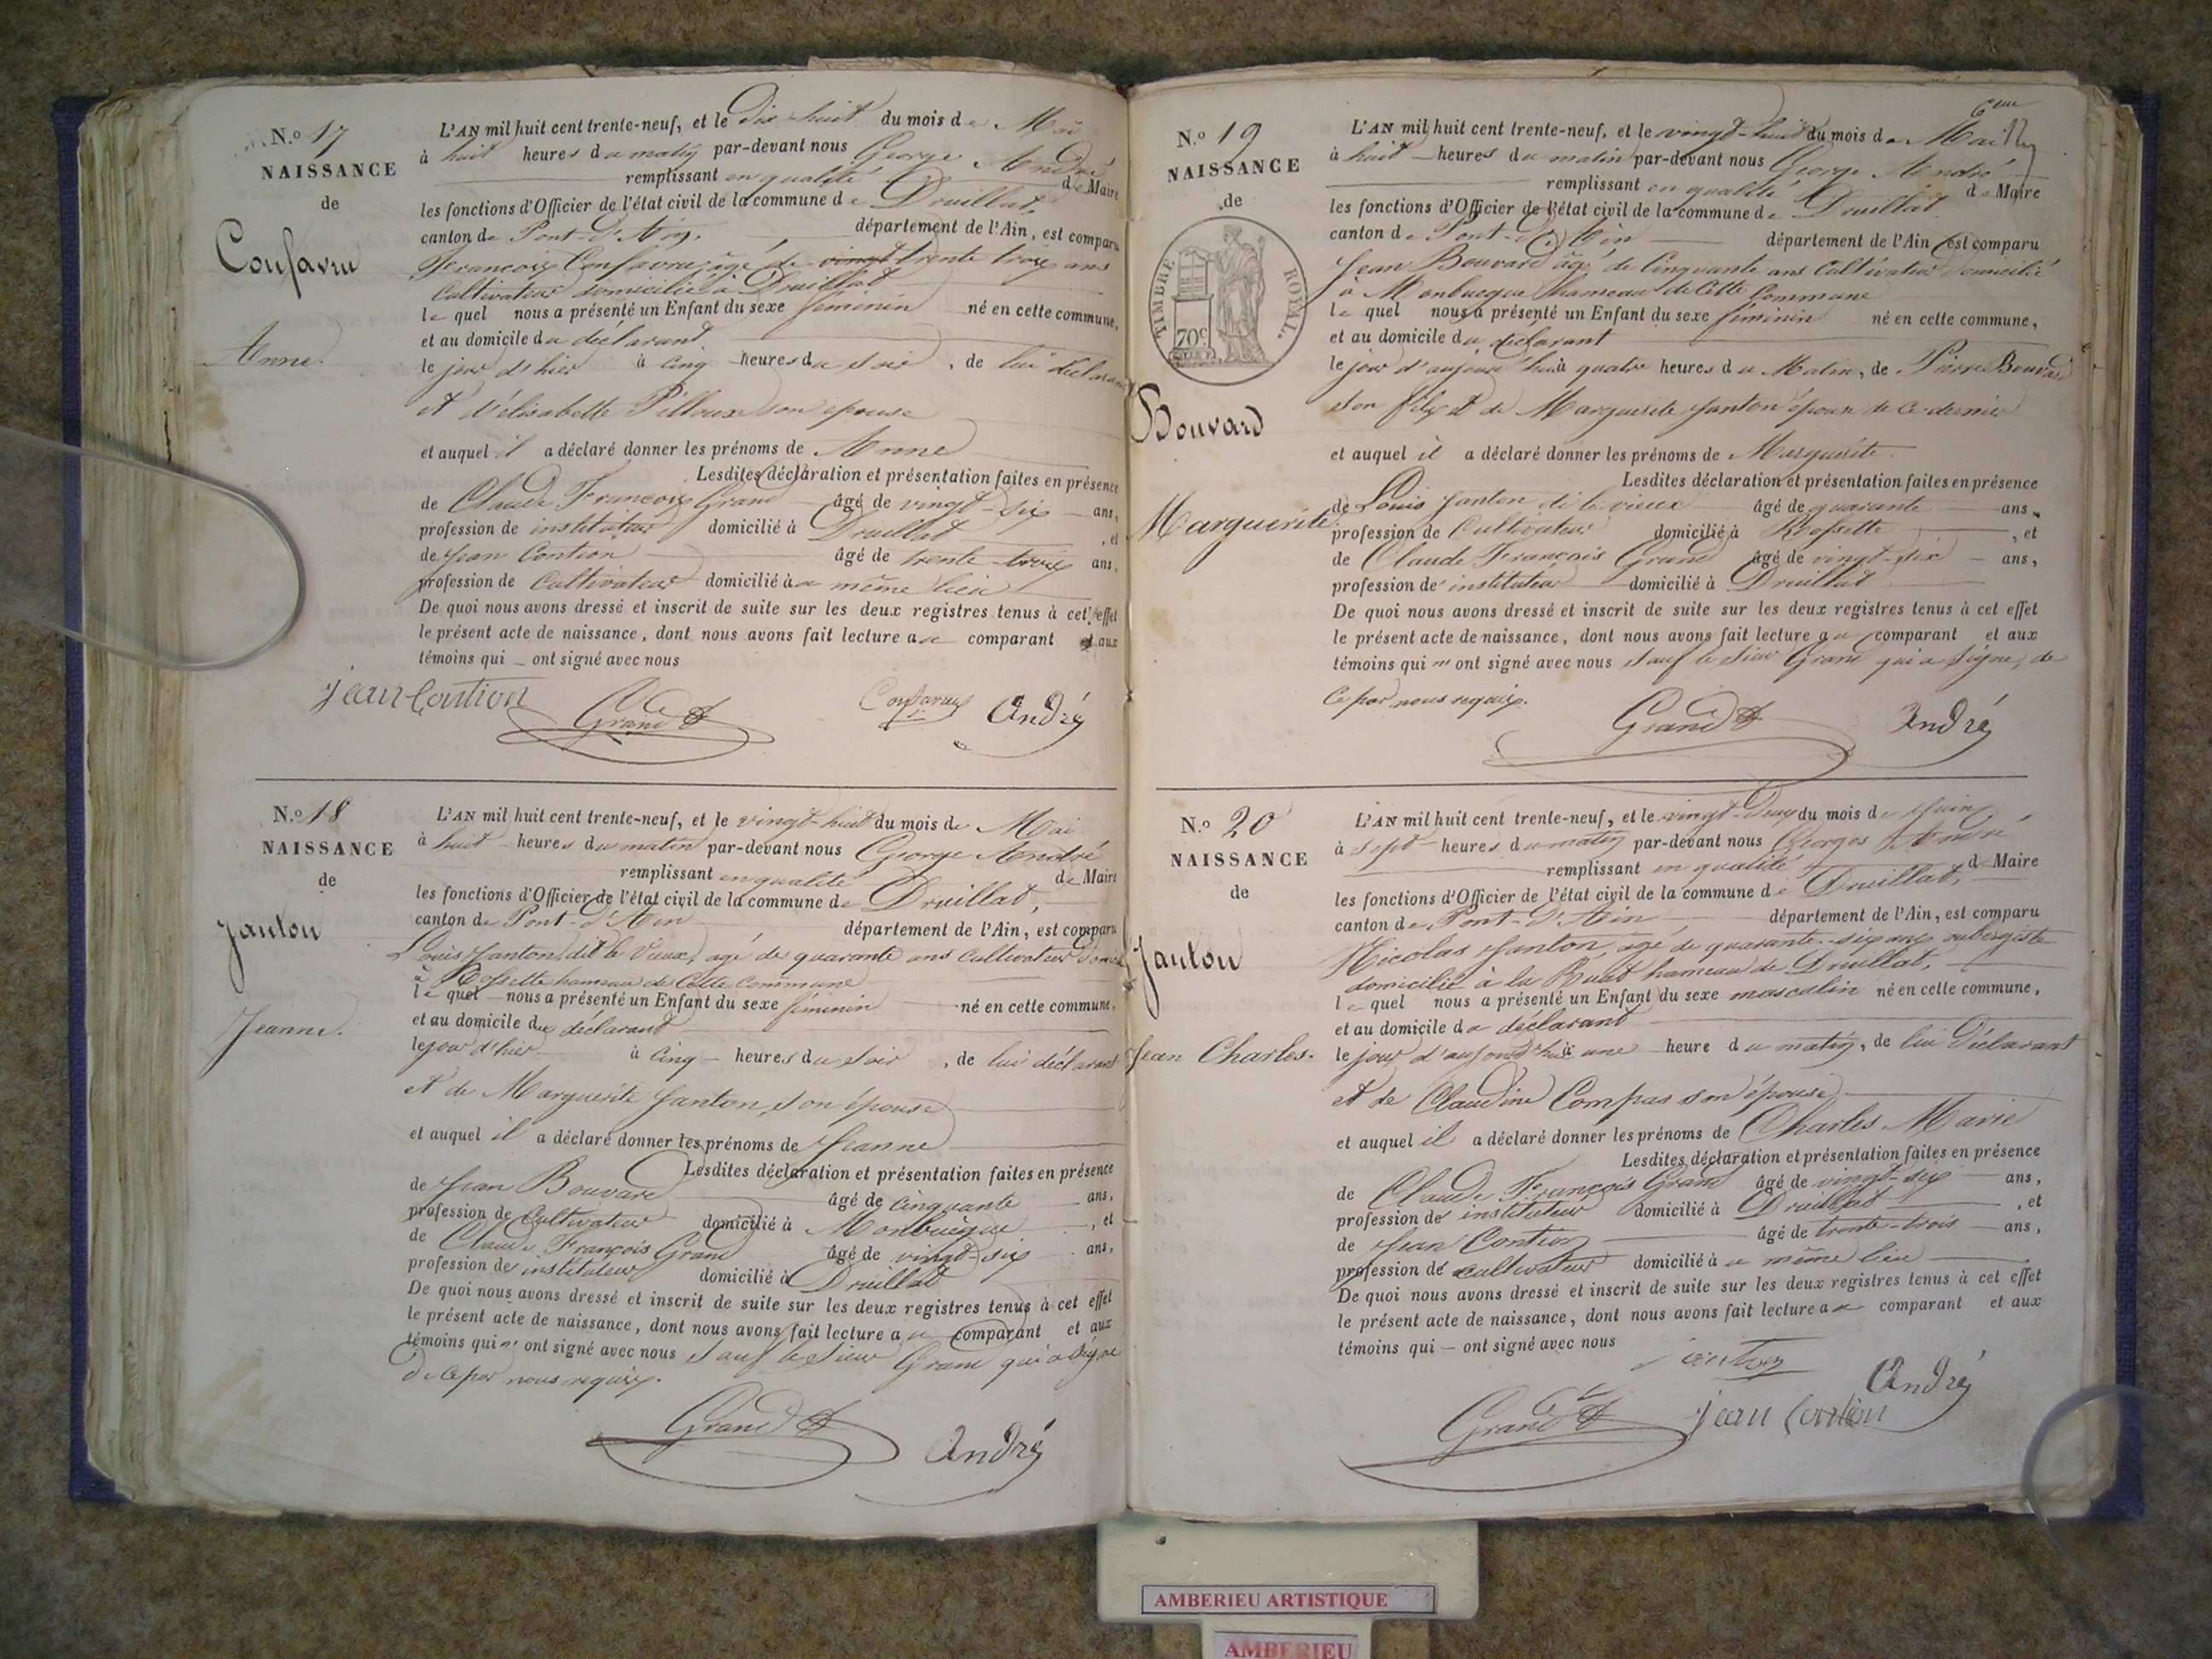 N.o 17
NAISSANCE
de
Confavru
Anne.
L'AN mil huit cent trente-neuf, et le dix-huit du mois de Mai
à huit heures du matin par-devant nous George André
remplissant en qualité de Maire
les fonctions d'Officier de l'état civil de la commune de Druillat,
canton de Pont-d'Ain, département de l'Ain, est comparu
François Confavru âgé de vingt trente trois ans
Cultivateur domicilié à Druillat
le quel nous a présenté un Enfant du sexe féminin né en cette commune,
et au domicile du déclarant.
le jour d'hier à cinq heures du soir, de lui déclarant
et d'élisabette Pilloux son épouse
et auquel il a déclaré donner les prénoms de Anne
Lesdites déclaration et présentation faites en présence
de Claude François Grand âgé de vingt-six ans,
profession de instituteur domicilié à Druillat, et
de Jean Contion âgé de trente-trois ans,
profession de Cultivateur domicilié à u même lieu
De quoi nous avons dressé et inscrit de suite sur les deux registres tenus à cet effet
le présent acte de naissance, dont nous avons fait lecture au comparant et aux
témoins qui ont signé avec nous
jean Contion
Grand
Confavru
André
N.o 18
NAISSANCE
de
Janton
Jeanne.
L'AN mil huit cent trente-neuf, et le vingt-huit du mois de Mai
à huit heures du matin par-devant nous George André
remplissant en qualité de Maire
les fonctions d'Officier de l'état civil de la commune de Druillat,
canton de Pont-d'Ain département de l'Ain, est comparu
Louis Janton, dit le Vieux, âgé de quarante ans cultivateur
à Rossette hameau de Cette Commune
le quel nous a présenté un Enfant du sexe féminin né en cette commune,
et au domicile du déclarant
le jour d'hier à cinq heures du soir, de lui déclarant
et de Marguerite Janton, son épouse
et auquel il a déclaré donner les prénoms de Jeanne
Lesdites déclaration et présentation faites en présence
de Jean Bouvard âgé de cinquante ans,
profession de Cultivateur domicilié à Monbuègue, et
de Claude François Grand âgé de vingt-six ans,
profession de instituteur domicilié à Druillat
De quoi nous avons dressé et inscrit de suite sur les deux registres tenus à cet effet
le présent acte de naissance, dont nous avons fait lecture au comparant et aux
témoins qui n' ont signé avec nous sauf le sieur Grand qui a signé
de ce par nous requis.
Grand
André
6eme
N.o 19
NAISSANCE
de
TIMBRE ROYAL.
70c
Bouvard
Marguerite.
L'AN mil huit cent trente-neuf, et le vingt-huit du mois de Mai
à huit heures du matin par-devant nous George André
remplissant en qualité de Maire
les fonctions d'Officier de l'état civil de la commune de Druillat
canton de Pont-d'Ain département de l'Ain, est comparu
Jean Bouvard âgé de Cinquante ans Cultivateur domicilié
à Monbuegue hameau de Cette Commune
le quel nous a présenté un Enfant du sexe féminin né en cette commune,
et au domicile du déclarant
le jour d'aujourd'hui à quatre heures du Matin, de Pierre Bouvard
son fils et de Marguerite Janton épouse de ce dernier
et auquel il a déclaré donner les prénoms de Marguerite.
Lesdites déclaration et présentation faites en présence
de Louis Janton dit le vieux âgé de quarante ans,
profession de Cultivateur domicilié à Rossette, et
de Claude François Grand âgé de vingt-six ans,
profession de instituteur domicilié à Druillat
De quoi nous avons dressé et inscrit de suite sur les deux registres tenus à cet effet
le présent acte de naissance, dont nous avons fait lecture au comparant et aux
témoins qui n' ont signé avec nous sauf le sieur Grand qui a signé, de
ce par nous requis.
Grand
André
N.o 20
NAISSANCE
de
Janton
Jean Charles.
L'AN mil huit cent trente-neuf, et le vingt-deux du mois de Juin
à sept heures du matin par-devant nous Georges André
remplissant en qualité de Maire
les fonctions d'Officier de l'état civil de la commune de Druillat,
canton de Pont-d'Ain département de l'Ain, est comparu
Nicolas Janton, âgé de quarante-six ans aubergiste
domicilié à la Ruat hameau de Druillat,
le quel nous a présenté un Enfant du sexe masculin né en cette commune,
et au domicile du déclarant
le jour d'aujourd'hui à une heure du matin, de lui déclarant
et de Claudine Compas son épouse
et auquel il a déclaré donner les prénoms de Charles Marie
Lesdites déclaration et présentation faites en présence
de Claude François Grand âgé de vingt-six ans,
profession de instituteur domicilié à Druillat, et
de Jean Contion âgé de trente-trois ans,
profession de cultivateur domicilié à u même lieu
De quoi nous avons dressé et inscrit de suite sur les deux registres tenus à cet effet
le présent acte de naissance, dont nous avons fait lecture au comparant et aux
témoins qui ont signé avec nous
janton
André
Grand
jean Contion
AMBERIEU ARTISTIQUE
AMBERIEU